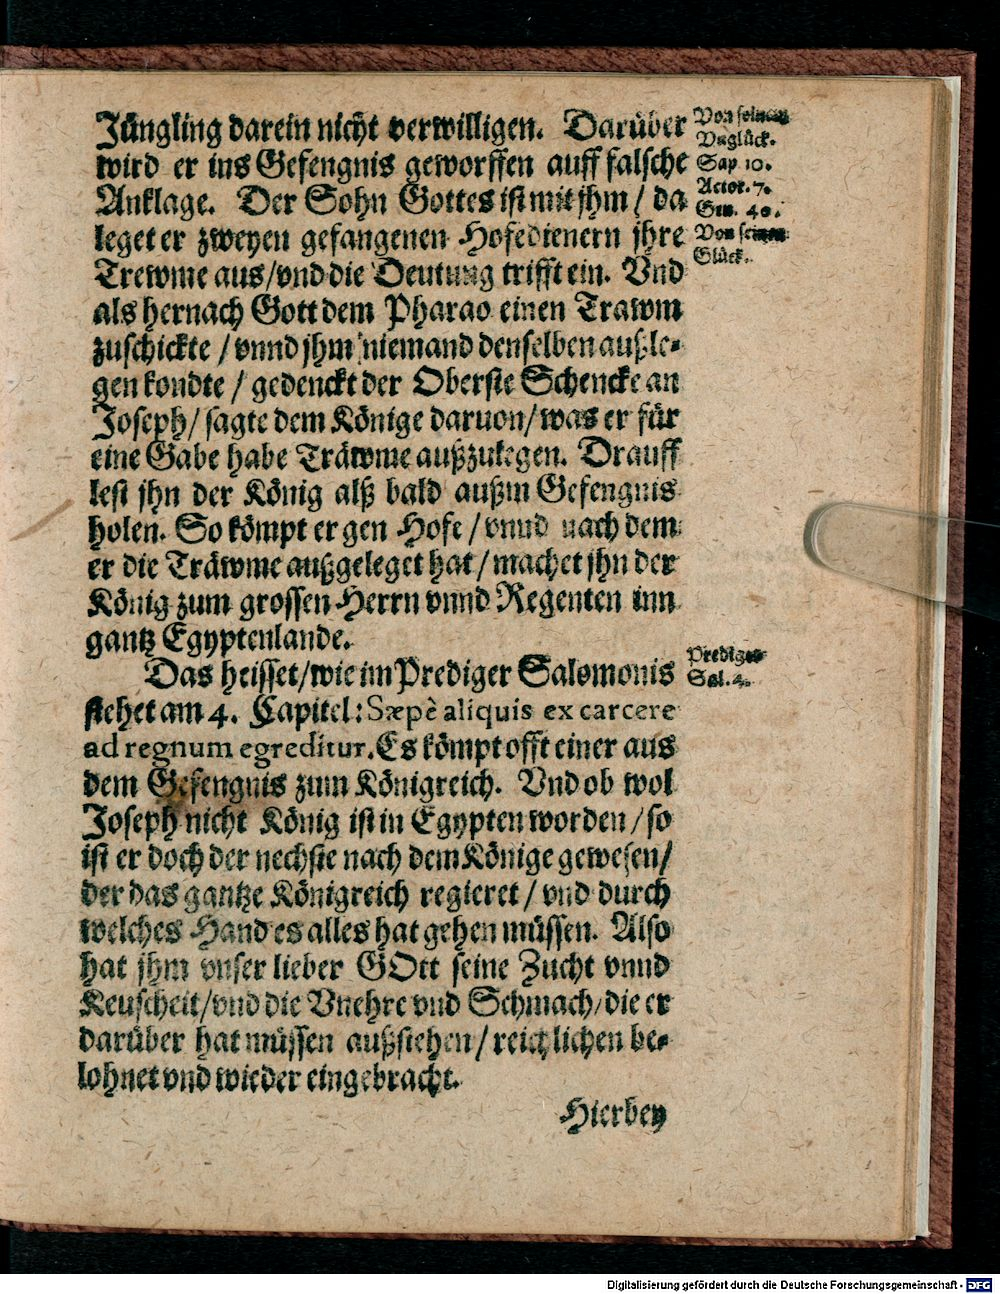 Jüngling darein nicht verwilligen. Darüber
wird er ins Gefengnis geworffen auff falsche
Anklage. Der Sohn Gottes ist mit jhm / da
leget er zweyen gefangenen Hofedienern jhre
Trewme aus / vnd die Deutung trifft ein. Vnd
als hernach Gott dem Pharao einen Trawm
zuschickte / vnnd jhm niemand denselben außle-
gen kondte / gedenckt der Oberste Schencke an
Joseph / sagte dem Könige daruon / was er für
eine Gabe habe Träwme außzulegen. Drauff
lest jhn der König alß bald außm Gefengnis
holen. So kömpt er gen Hofe / vnnd nach dem
er die Träwme außgeleget hat / machet jhn der
König zum grossen Herrn vnnd Regenten inn
gantz Egyptenlande.
Das heisset / wie im Prediger Salomonis
stehet am 4. Capitel: Sæpè aliquis ex carcere
ad regnum egreditur. Es kömpt offt einer aus
dem Gefengnis zum Königreich. Vnd ob wol
Joseph nicht König ist in Egypten worden / so
ist er doch der nechste nach dem Könige gewesen /
der das gantze Königreich regieret / vnd durch
welches Hand es alles hat gehen müssen. Also
hat jhm vnser lieber GOtt seine Zucht vnnd
Keuscheit / vnd die Vnehre vnd Schmach / die er
darüber hat müssen außstehen / reichlichen be-
lohnet vnd wieder eingebracht.
Hierbey
Von seinem
Vnglück.
Sap 10.
Actor. 7.
Gen. 40.
Von seinem
Glück.
Prediger
Sal. 4.
Digitalisierung gefördert durch die Deutsche Forschungsgemeinschaft - DFG